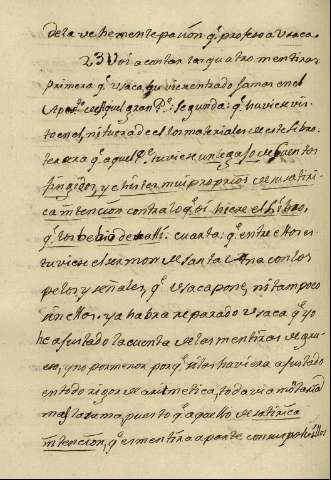 de la vehemente pasión q̃ profeso a Vsaca.
23 Voi a contar las quatro mentiras
primera q̃ Vsaca, huviese entrado jamas en el
Apos.to de Aquel gran P.e: Segunda: q̃ huviese vis
to en el, ni tuera de el los materiales de este libro
tercera q̃ aquel P.e tuviese un legajo de Cuentos
fingidos, y chistes mui proprios de su satiri
ca intencion contra los q̃ hiciese el libro,
q̃ los debio de alli: cuarta: q̃ entre ellos es
tuviese el sermon de Santa Ana con los
pelos y señales, q̃ Vsaca pone, ni tampoco
sin ellos. ya habra reparado Vsaca q̃ yo
he ajustado la cuenta de las mentiras de grue
so, y no por menor porq̃ si las huviera ajustado
en todo rigor de arismetica, todavia montaria
mas la suma, puesto q̃ aquello de satirica
intencion, q̃ es mentira aparte con sus polvillos